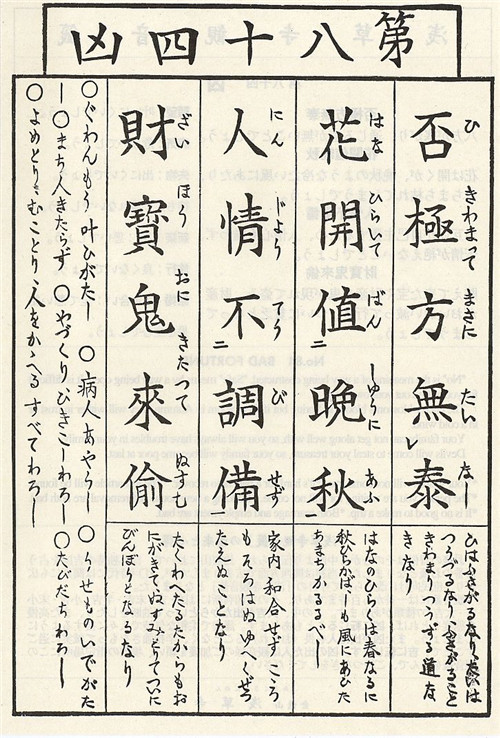 第八十四凶
否極方無泰
ひ きわまって まさに たい なし
ひはふさがるなりたいは
つうづるなりふさがること
きわまりつうずる道な
きなり
花開直晩秋
はな ひらいて ばん しゅうに あふ
はなのひらくは春なるに
秋ひらかばしも風にあひた
ちまちかるるべし
人情不調備
にん じよう とゝのう び せず
家内和合せずこころ
もそろはぬゆへくぜつ
たえぬとなり
財寶鬼來偷
ざい ほう おに きたって ぬすむ
たくわへたるたからもお
にがきてぬすみてついに
びんぼうになるなり
○ぐわんもう叶ひがたし ○病人あやうし ○うせものいでがた
し ○まち人きたらず ○やづくりひきこしわろし ○たびだちわろし
○よめとりむことり人をかゝへるすべてわろし